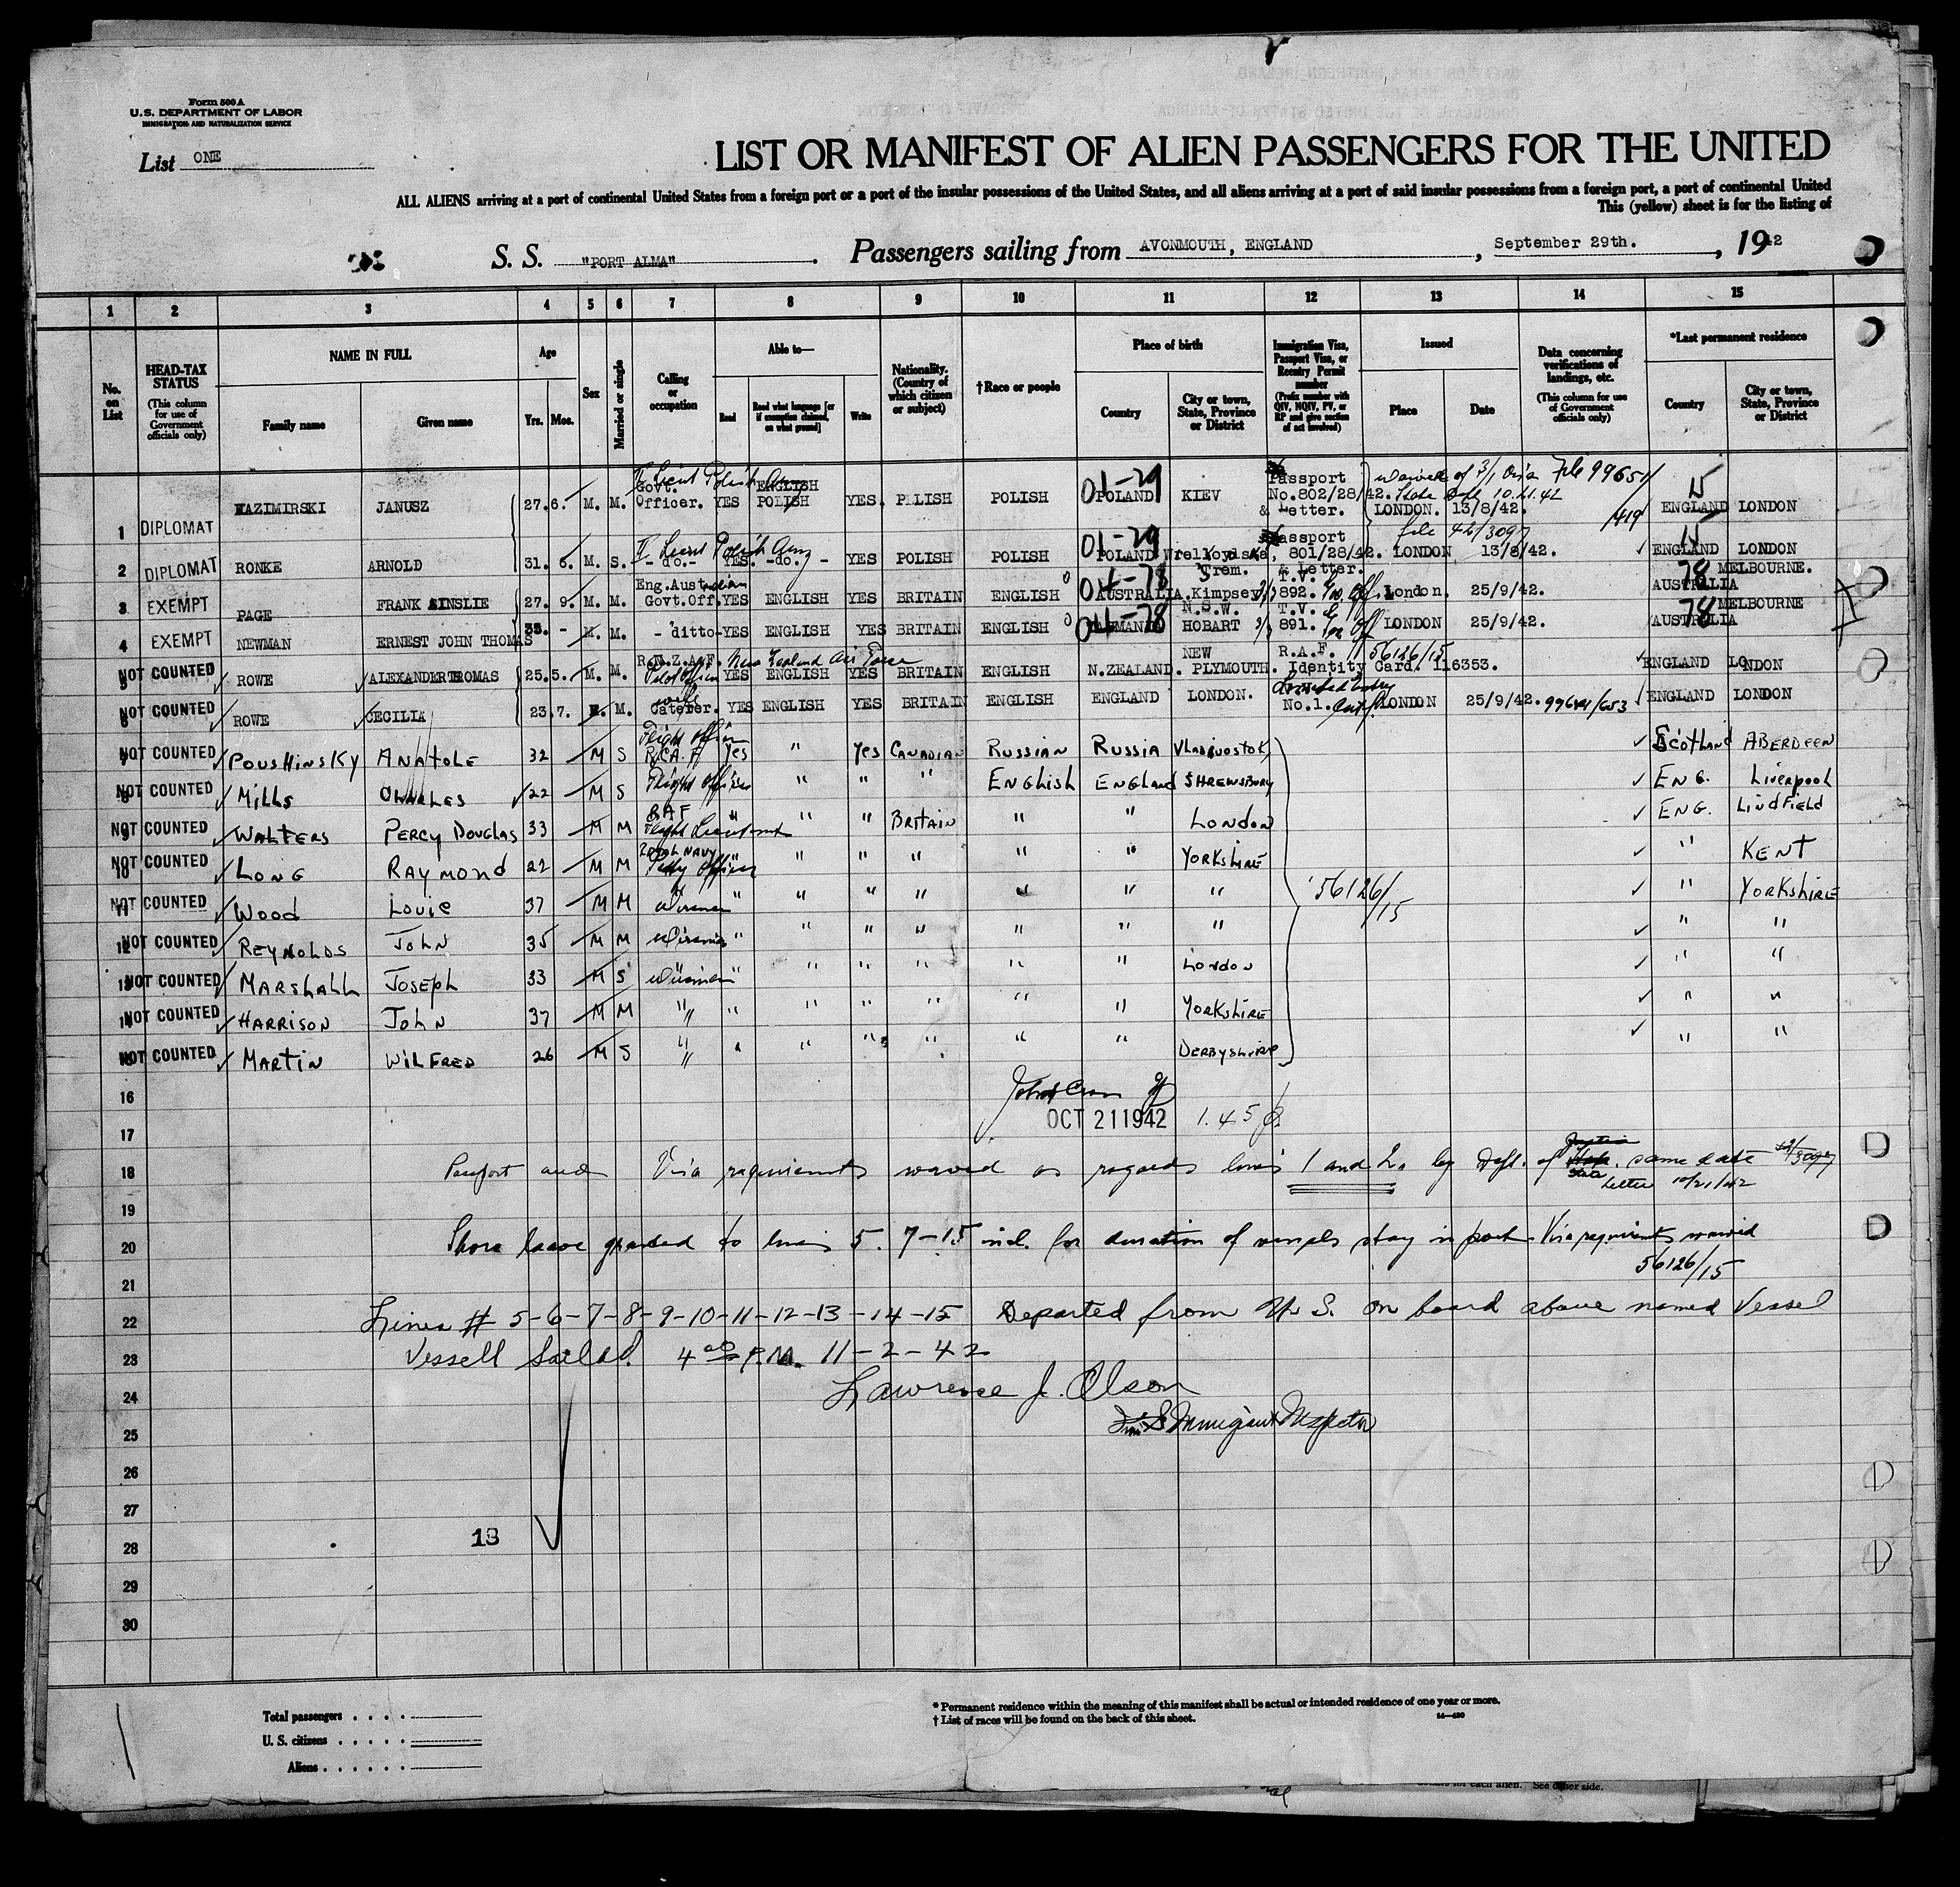 Form 500 A
U.S. DEPARTMENT OF LABOR
IMMIGRATION AND NATURALIZATION SERVICE
List ONE
LIST OR MANIFEST OF ALIEN PASSENGERS FOR THE UNITED
ALL ALIENS arriving at a port of continental United States from a foreign port or a port of the insular possessions of the United States, and all aliens arriving at a port of said insular possessions from a foreign port, a port of continental United
This (yellow) sheet is for the listing of
S. S. "PORT ALMA" . Passengers sailing from AVONMOUTH, ENGLAND , September 29th. , 1942
1 2 3 4 5 6 7 8 9 10 11 12 13 14 15
No. on List
HEAD-TAX STATUS (This column for use of Government officials only)
NAME IN FULL
Family name Given name
Age
Yrs. Mos.
Sex
Married or single
Calling or occupation
Able to—
Read Read what language [or if exemption claimed, on what ground] Write
Nationality. (Country of which citizen or subject)
†Race or people
Place of birth
Country City or town, State, Province or District
Immigration Visa, Passport Visa, or Reentry Permit number (Prefix number with QIV, NQIV, PV, or RP and give section of act involved)
Issued
Place Date
Data concerning verifications of landings, etc. (This column for use of Government officials only)
*Last permanent residence
Country City or town, State, Province or District
1 DIPLOMAT KAZIMIRSKI JANUSZ 27.6. M. M. Lieut Polish Army Govt. Officer. YES ENGLISH POLISH YES. POLISH POLISH 01-29 POLAND KIEV Passport No.802/28/42. & Letter. LONDON. 13/8/42. File 99651/ 15 ENGLAND LONDON
2 DIPLOMAT RONKE ARNOLD 31. 6. M. S. Lieut Polish Army - do.- YES. -do. - YES POLISH POLISH 01-29 POLAND Passport 801/28/42. & Letter. LONDON 13/8/42. file 42/3097 15 ENGLAND LONDON
3 EXEMPT PAGE FRANK AINSLIE 27. 9. M. M. Eng.Australian Govt.Off. YES ENGLISH YES BRITAIN ENGLISH 04-78 AUSTRALIA. Kimpsey N.S.W. T.V. 892. London. 25/9/42. 78 AUSTRALIA MELBOURNE.
4 EXEMPT NEWMAN ERNEST JOHN THOMAS 35. - M. M. - ditto- YES ENGLISH YES BRITAIN ENGLISH 04-78 HOBART T.V. 891. LONDON 25/9/42. 78 AUSTRALIA MELBOURNE
5 NOT COUNTED ROWE ALEXANDER THOMAS 25.5. M. M. R.N.Z.A.F. New Zealand Air Force Pilot Officer YES ENGLISH YES BRITAIN ENGLISH N.ZEALAND. NEW PLYMOUTH. R.A.F. Identity Card. 116353. 56126/15 ENGLAND LONDON
6 NOT COUNTED ROWE CECILIA 23.7. F. M. wife Caterer. YES ENGLISH YES BRITAIN ENGLISH ENGLAND LONDON. No.1. LONDON 25/9/42. 99641/653 ENGLAND LONDON
7 NOT COUNTED POUSHINSKY ANATOLE 32 M S Flight Officer R.C.A.F Yes " Yes CANADIAN RUSSIAN RUSSIA VLADIVOSTOK Scotland ABERDEEN
8 NOT COUNTED MILLS CHARLES 22 M S Flight Officer " " " " ENGLISH ENGLAND SHREWSBURY ENG. Liverpool
9 NOT COUNTED WALTERS PERCY DOUGLAS 33 M M RAF Flight Lieutenant " " " BRITAIN " " LONDON ENG. LINDFIELD
10 NOT COUNTED LONG RAYMOND 22 M M ROYAL NAVY Petty Officer " " " " " " YORKSHIRE " KENT
11 NOT COUNTED WOOD LOUIE 37 M M " " " " " " " 56126/15 " YORKSHIRE
12 NOT COUNTED REYNOLDS JOHN 35 M M " " " " " " " " "
13 NOT COUNTED MARSHALL JOSEPH 33 M S " " " " " " LONDON " "
14 NOT COUNTED HARRISON JOHN 37 M M " " " " " " " YORKSHIRE " "
15 NOT COUNTED MARTIN WILFRED 26 M S " " " " " " " DERBYSHIRE " "
16
OCT 21 1942 1.45 p.
17
18 Passport and Visa requirements waived as regards lines 1 and 2. by Dept. of State. same date letter 10/21/42
19
20 Shore leave granted to lines 5. 7-15 incl. for duration of vessels stay in port. Visa requirements waived
56126/15
21
22 Lines # 5-6-7-8-9-10-11-12-13-14-15 Departed from U. S. on board above named Vessel
23 Vessell Sailed. 4 00 P.M. 11-2-42
24 Lawrence J. Olson
25 Immigrant Inspector
26
27
28 13
29
30
Total passengers . . . .
U. S. citizens . . . . .
Aliens . . . . . .
* Permanent residence within the meaning of this manifest shall be actual or intended residence of one year or more.
† List of races will be found on the back of this sheet.
14—430
for each alien. See other side.